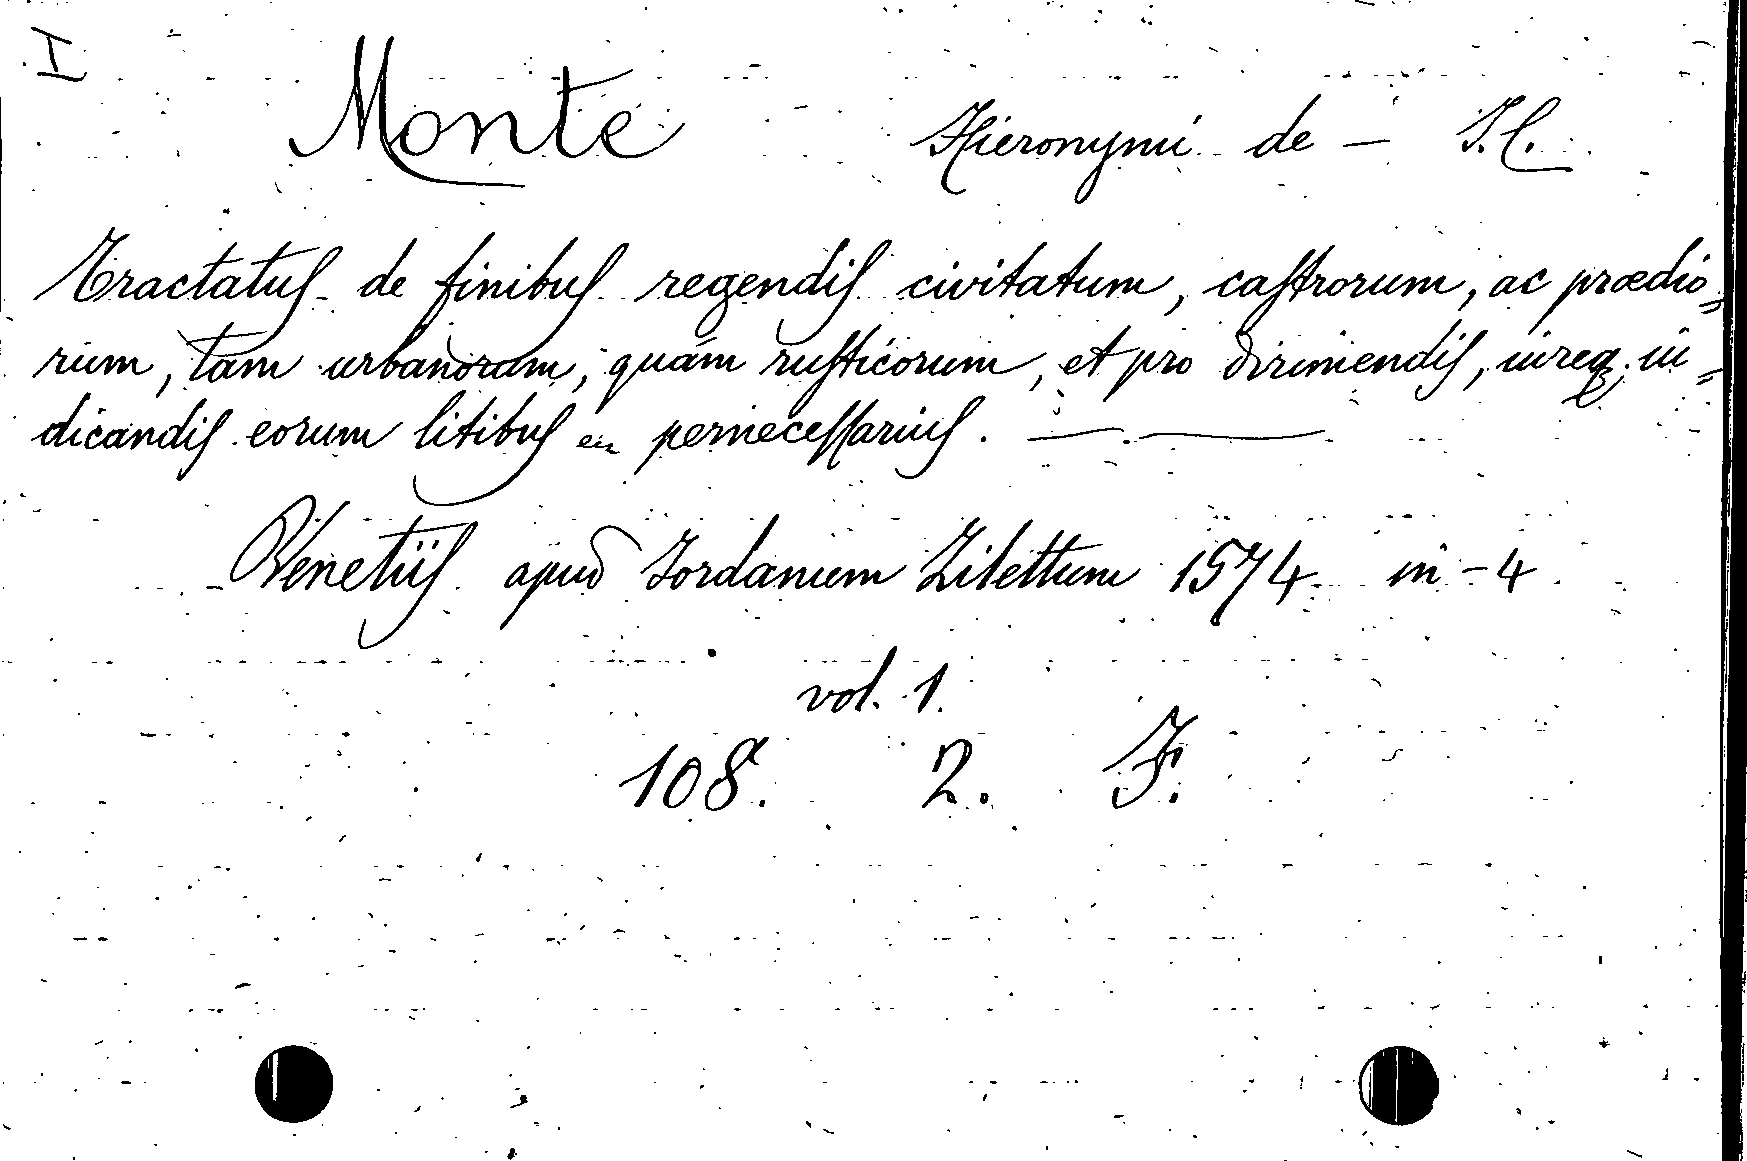 I
Monte Hieronymi de — I.C.
Tractatus de finibus regendis civitatum, castrorum, ac prædio=
rum, tam urbanoram, quám rusticorum, et pro dirimendis, iureq; iu=
dicandis eorum litibus pernecessarius. —.—
Venetiis apud Iordanum Zilettum 1574 in-4
vol. 1.
108. 2. F.